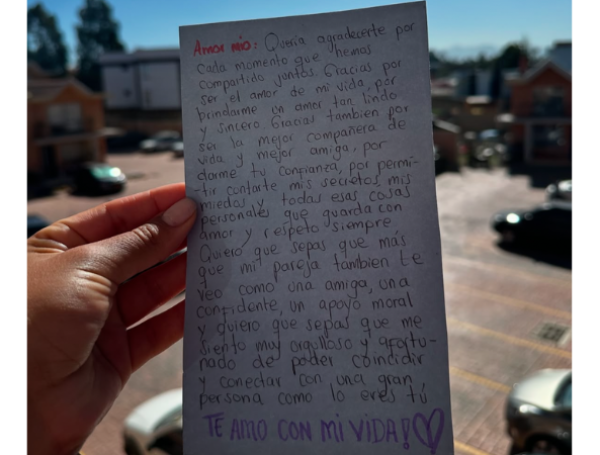 Amor mio: Quería agradecerte por
cada momento que hemos
compartido juntos. Gracias por
ser el amor de mi vida, por
brindarme un amor tan lindo
y sincero Gracias también por
ser la mejor compañera de
vida y mejor amiga, por
darme tu confianza, por permi-
tir contarte mis secretos, mis
miedos y todas esas cosas
personales que guarda con
amor y respeto siempre
Quiero que sepas que más
que mi pareja también te
veo como una amiga, una
confidente, un apoyo moral
y quiero que sepas que me
siento muy orgulloso y afortu-
nado de poder coincidir
y conectar con una gran
persona como lo eres tú
TE AMO CON MI VIDA!